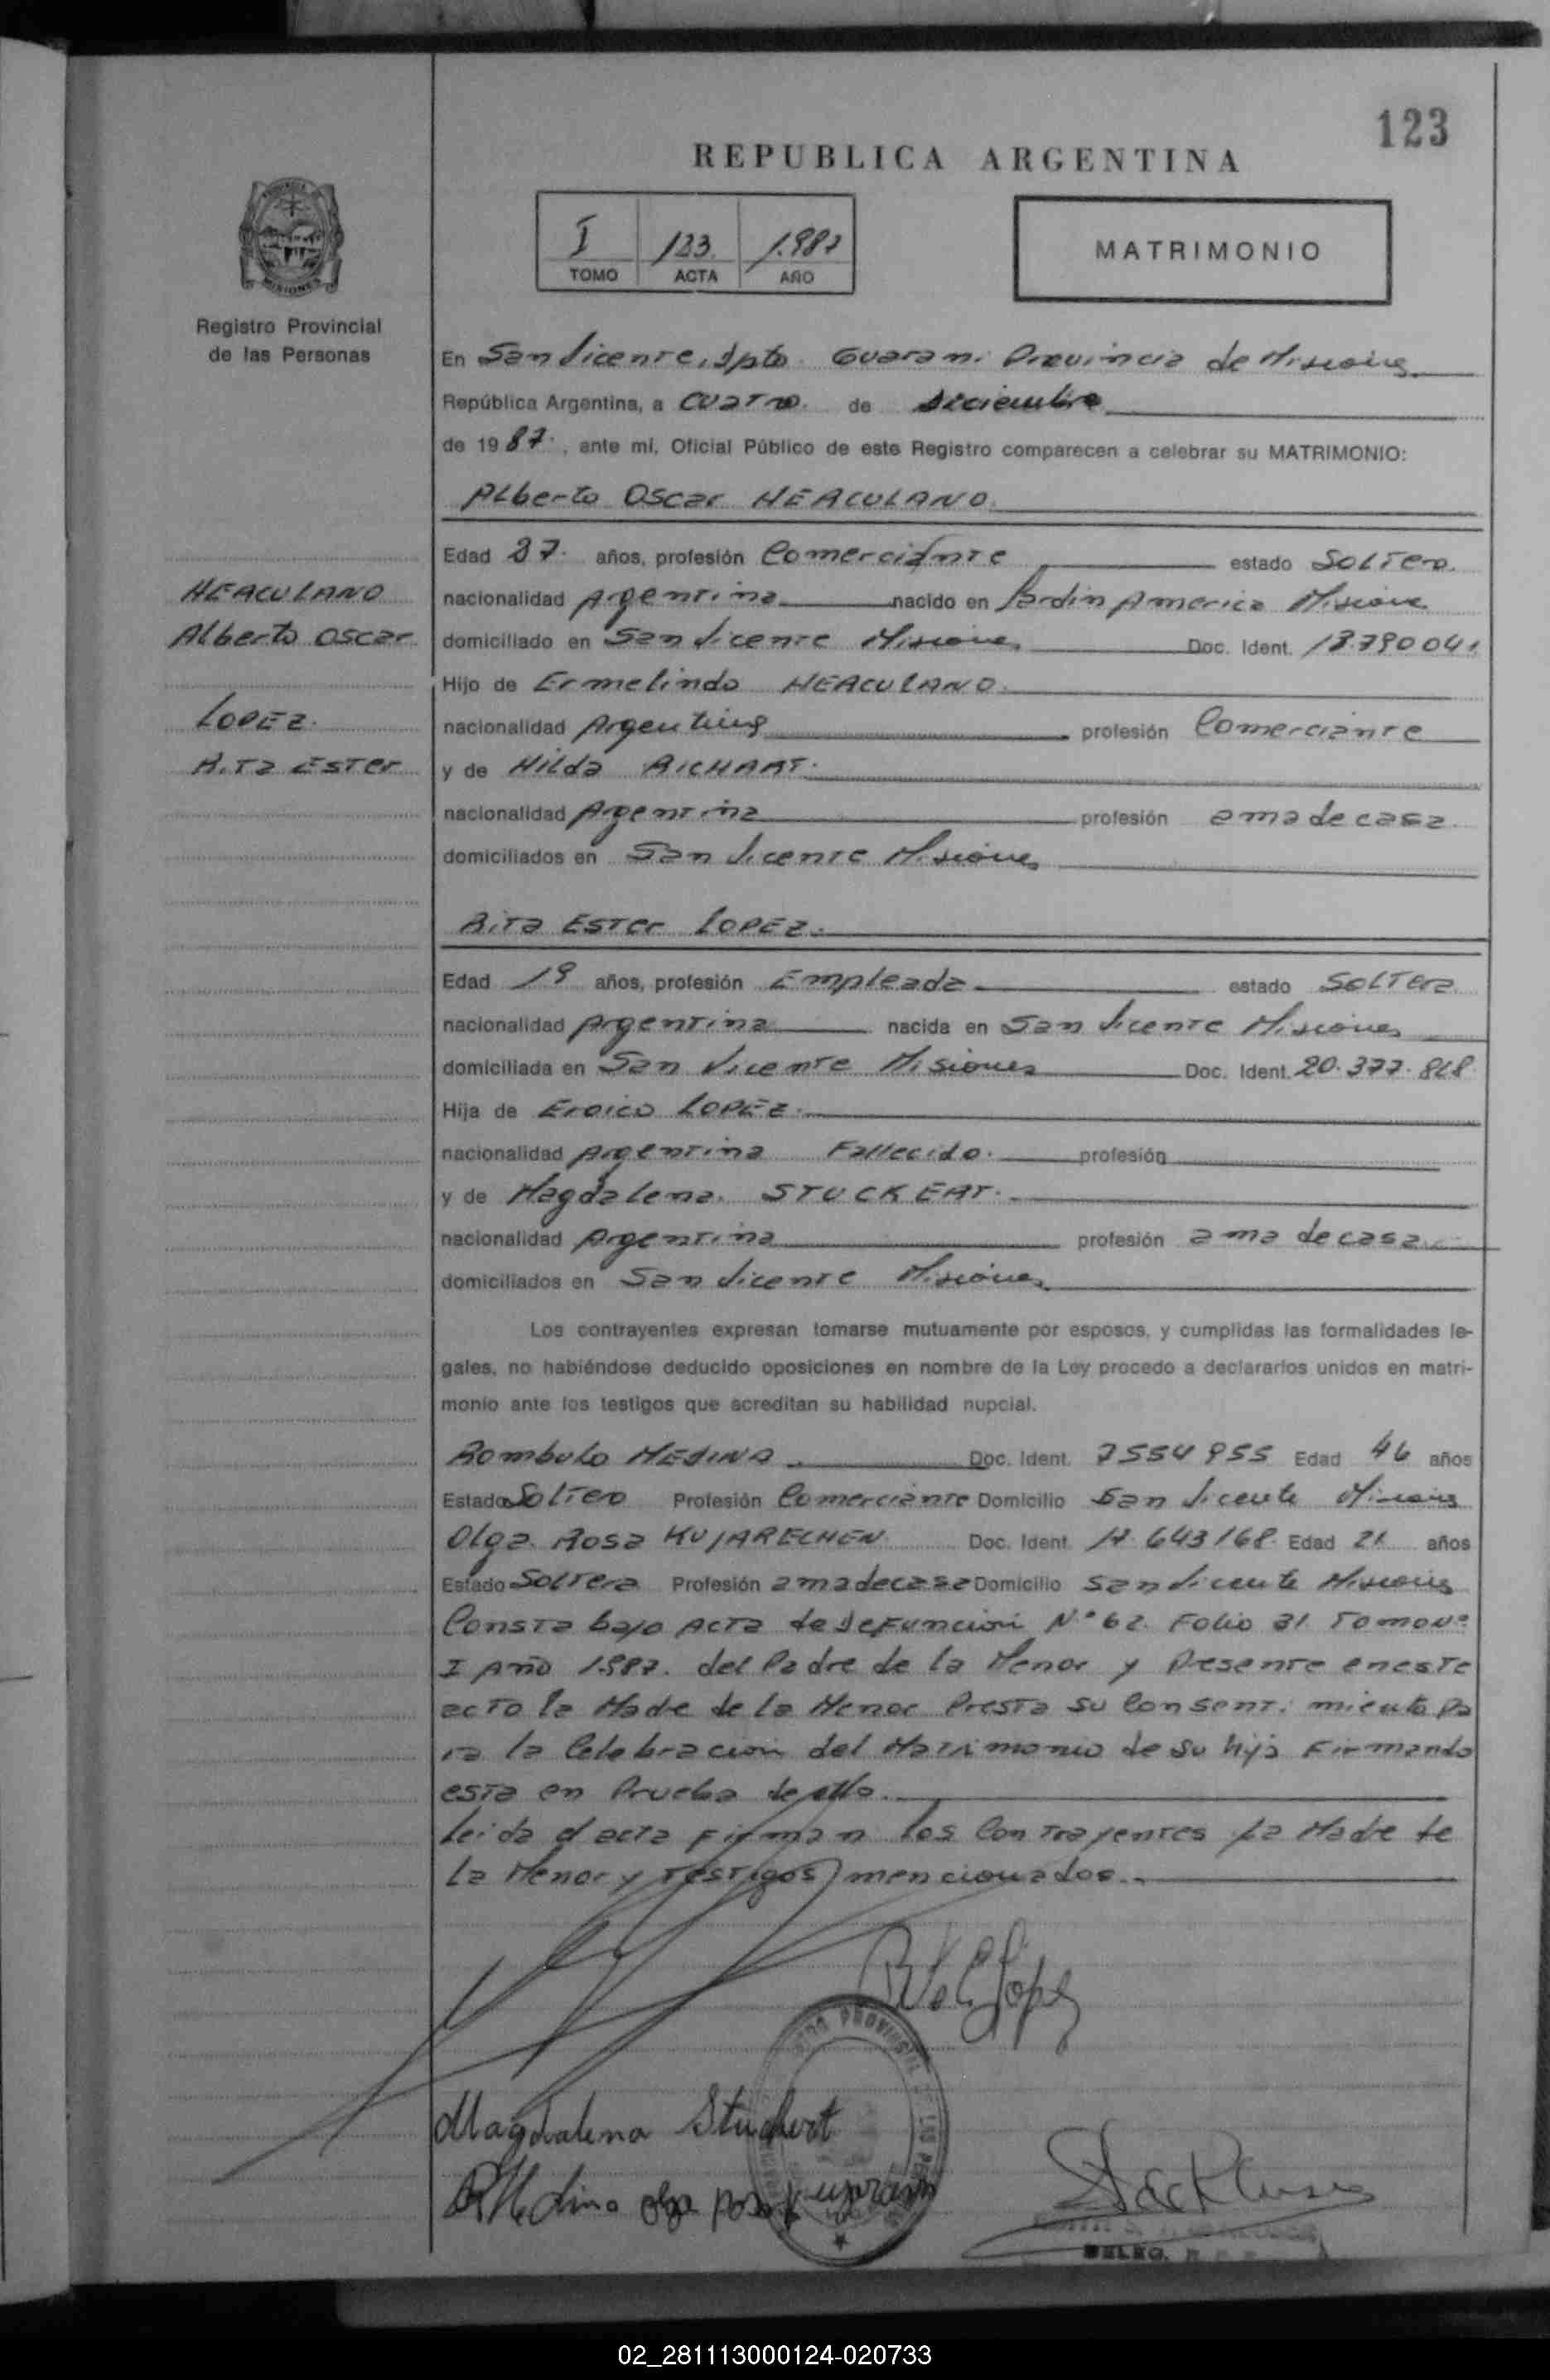 123
REPUBLICA ARGENTINA
I 123. 1.987
TOMO ACTA AÑO
MATRIMONIO
MISIONES
Registro Provincial
de las Personas
En San Vicente, Dpto. Guarani Provincia de Misiones
República Argentina, a cuatro. de diciembre
de 1987., ante mí, Oficial Público de este Registro comparecen a celebrar su MATRIMONIO:
Alberto Oscar HERCULANO.
HERCULANO
Alberto Oscar
LOPEZ.
Rita Ester
Edad 27. años, profesión Comerciante estado Soltero.
nacionalidad Argentina nacido en Jardin America Misiones
domiciliado en San Vicente Misiones Doc. Ident. 13.790041
Hijo de Ermelindo HERCULANO.
nacionalidad Argentina profesión Comerciante
y de Hilda RICHART.
nacionalidad Argentina profesión ama de casa.
domiciliados en San Vicente Misiones
Rita Ester LOPEZ.
Edad 19 años, profesión Empleada estado Soltera
nacionalidad Argentina nacida en San Vicente Misiones
domiciliada en San Vicente Misiones Doc. Ident. 20.377.868
Hija de Eroico LOPEZ.
nacionalidad Argentina Fallecido. profesión
y de Magdalena. STUCKERT.
nacionalidad Argentina profesión ama de casa.
domiciliados en San Vicente Misiones
Los contrayentes expresan tomarse mutuamente por esposos, y cumplidas las formalidades le-
gales, no habiéndose deducido oposiciones en nombre de la Ley procedo a declararlos unidos en matri-
monio ante los testigos que acreditan su habilidad nupcial.
Rombulo MEDINA. Doc. Ident. 7554955 Edad 46 años
Estado Soltero Profesión Comerciante Domicilio San Vicente Misiones
Olga Rosa KUJARECHEN Doc. Ident. 17.643168. Edad 21 años
Estado Soltera Profesión ama de casa Domicilio San Vicente Misiones
Consta bajo Acta de Defuncion N° 62. Folio 31. Tomo N°
I Año 1.987. del Padre de la Menor y Presente en este
acto la Madre de la Menor Presta su Consentimiento pa
ra la Celebracion del Matrimonio de su hija Firmando
esta en Prueba de ello.
Leida el acta Firman los Contrayentes la Madre de
la Menor y Testigos mencionados.
Rita E. Lopez
Magdalena Stuckert
R Medina Olga Rosa
DELEG.
02_281113000124-020733